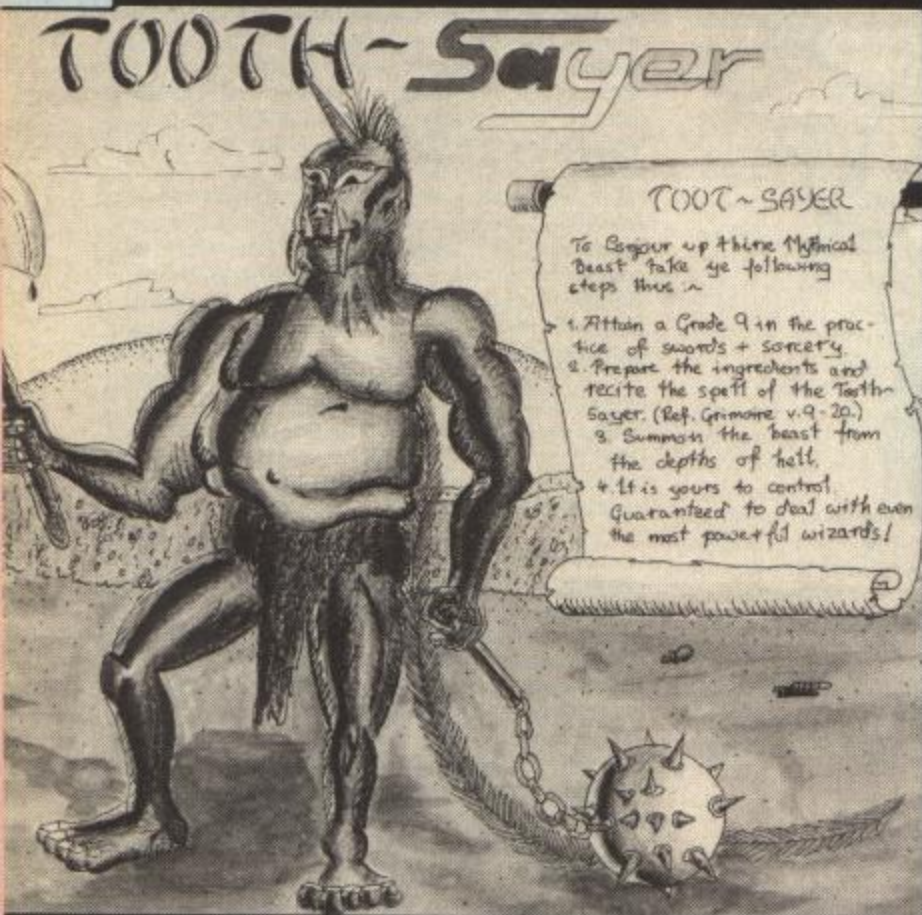 TOOTH-Sayer
TOOT~SAYER
To Conjour up thine Mythical
Beast take ye following
steps thus :~
1. Attain a Grade 9 in the prac-
tice of swords + sorcery.
2. Prepare the ingredients and
recite the spell of the Tooth-
Sayer. (Ref. Grimoire v.9-20.)
3. Summon the beast from
the depths of hell.
4. It is yours to control.
Guaranteed to deal with even
the most powerful wizards!